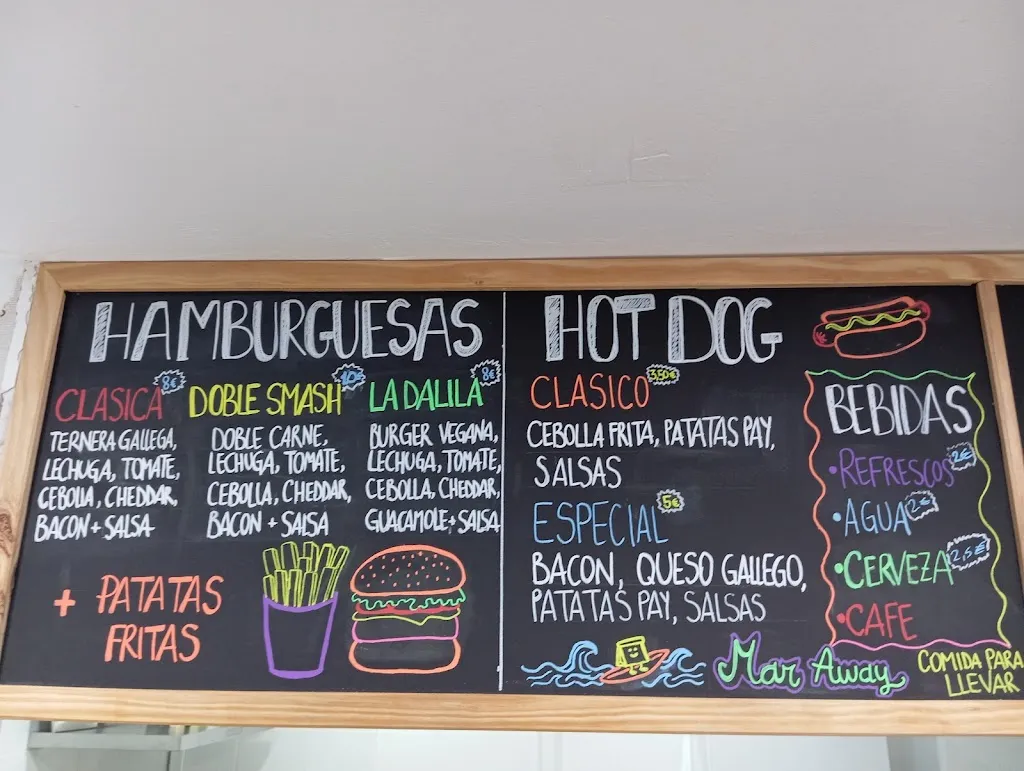 HAMBURGUESAS
CLASICA 8€
TERNERA GALLEGA,
LECHUGA, TOMATE,
CEBOLLA, CHEDDAR,
BACON + SALSA
DOBLE SMASH 10€
DOBLE CARNE,
LECHUGA, TOMATE,
CEBOLLA, CHEDDAR,
BACON + SALSA
LA DALILA 8€
BURGER VEGANA,
LECHUGA, TOMATE,
CEBOLLA, CHEDDAR,
GUACAMOLE + SALSA
+ PATATAS
FRITAS
HOT DOG
CLASICO 3,50€
CEBOLLA FRITA, PATATAS PAY,
SALSAS
ESPECIAL 5€
BACON, QUESO GALLEGO,
PATATAS PAY, SALSAS
BEBIDAS
•REFRESCOS 2€
•AGUA 2€
•CERVEZA 2,5€
•CAFE
Mar Away
COMIDA PARA
LLEVAR